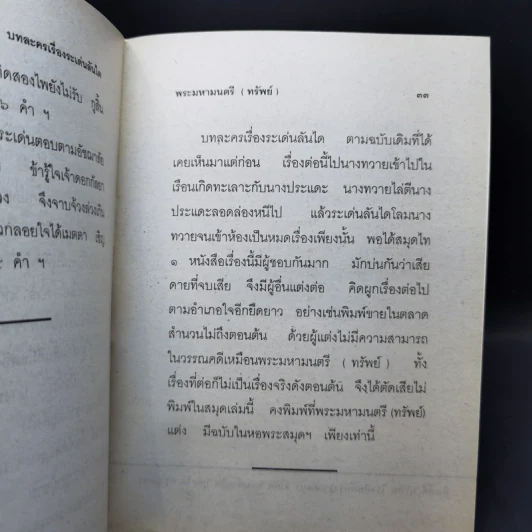 บทละครเรื่องระเด่นลันได
กิดสองไพยังไม่รับ กูสิ้น
๖ คำ ฯ
ระเด่นตอบตามอัชฌาสัย
ข้ารู้ใจเจ้าดอกกัลยา
อง จึงจาบจ้วงล่วงเกิน
วกลอยใจได้เมตตา เชิญ
คำ ฯ
พระมหามนตรี ( ทรัพย์ ) ๓๓
บทละครเรื่องระเด่นลันได ตามฉบับเดิมที่ได้
เคยเห็นมาแต่ก่อน เรื่องต่อนี้ไปนางทวายเข้าไปใน
เรือนเกิดทะเลาะกับนางประแดะ นางทวายไล่ตีนาง
ประแดะลอดล่องหนีไป แล้วระเด่นลันไดโลมนาง
ทวายจนเข้าห้องเป็นหมดเรื่องเพียงนั้น พอได้สมุดไท
๑ หนังสือเรื่องนี้มีผู้ชอบกันมาก มักบ่นกันว่าเสีย
ดายที่จบเสีย จึงมีผู้อื่นแต่งต่อ คิดผูกเรื่องต่อไป
ตามอำเภอใจอีกยืดยาว อย่างเช่นพิมพ์ขายในตลาด
สำนวนไม่ถึงตอนต้น ด้วยผู้แต่งไม่มีความสามารถ
ในวรรณคดีเหมือนพระมหามนตรี ( ทรัพย์ ) ทั้ง
เรื่องที่ต่อก็ไม่เป็นเรื่องจริงดังตอนต้น จึงได้ตัดเสียไม่
พิมพ์ในสมุดเล่มนี้ คงพิมพ์ที่พระมหามนตรี (ทรัพย์)
แต่ง มีฉบับในหอพระสมุดฯ เพียงเท่านี้